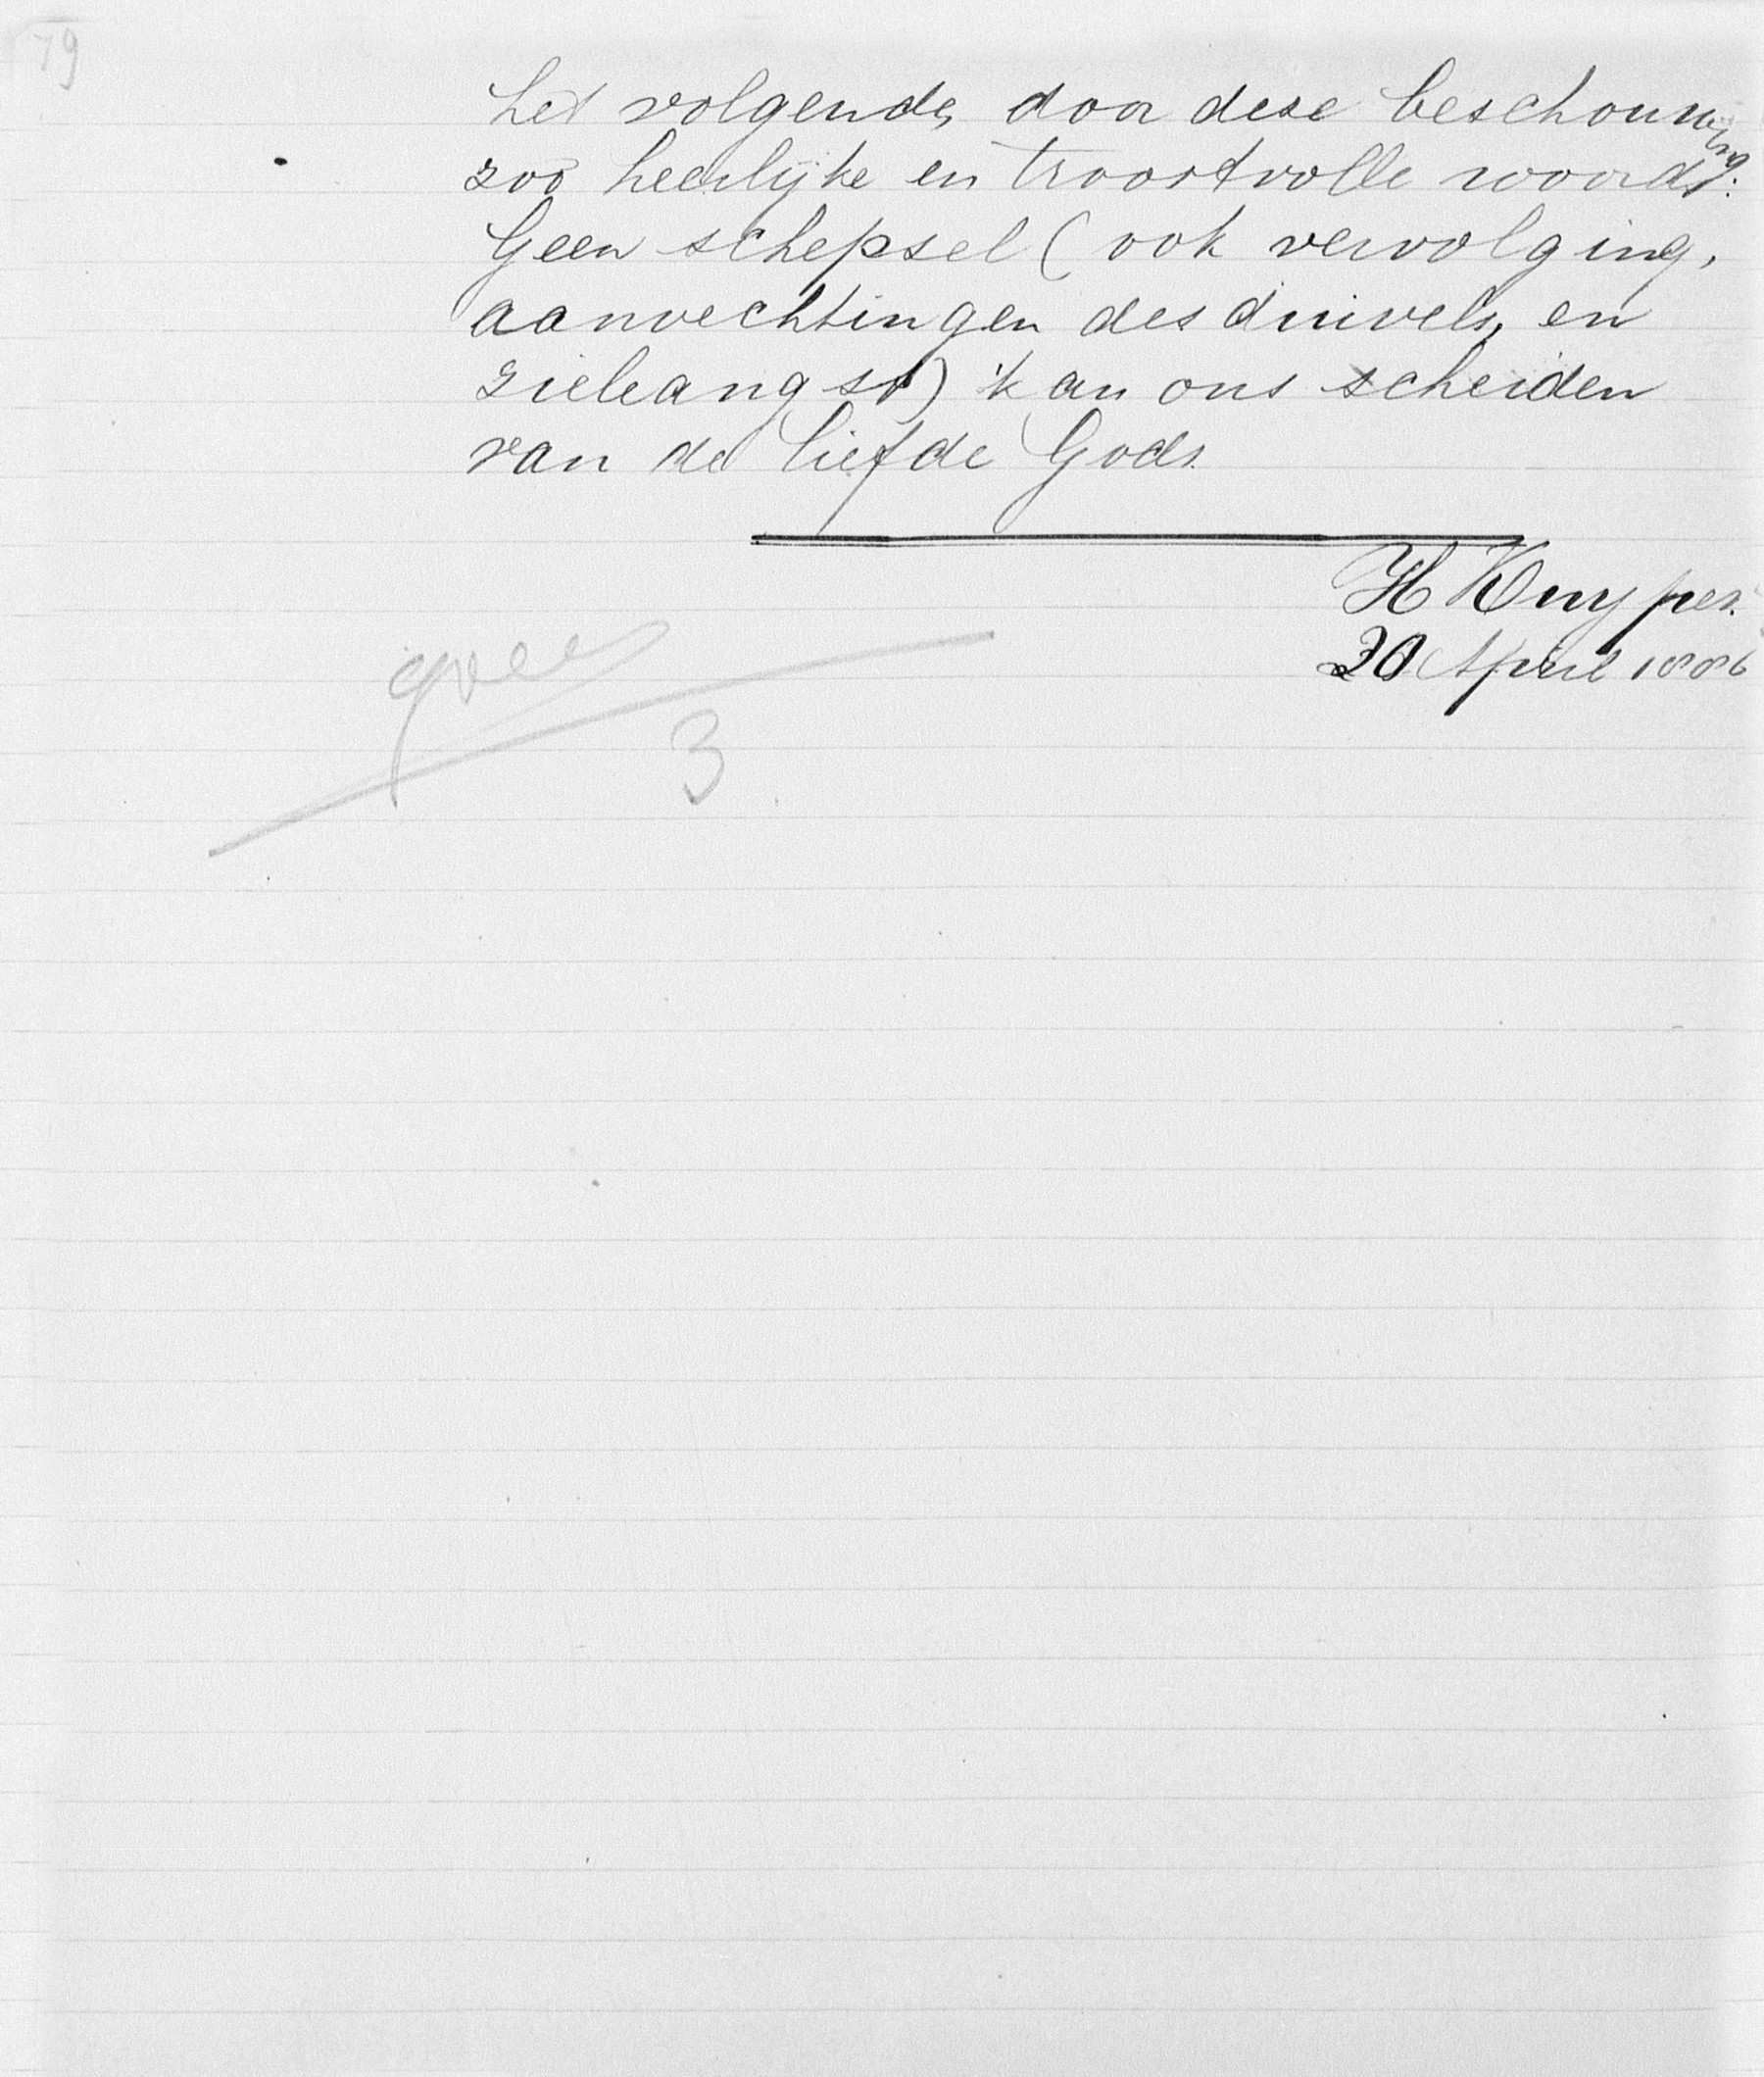 79
het volgende, door deze beschouwing
zoo heerlijke en troostvolle woord:
Geen schepsel (ook vervolging,
aanvechtingen des duivels, en
zieleangst) kan ons scheiden
van de liefde Gods.
H Kuyper.
20 April 1886
3